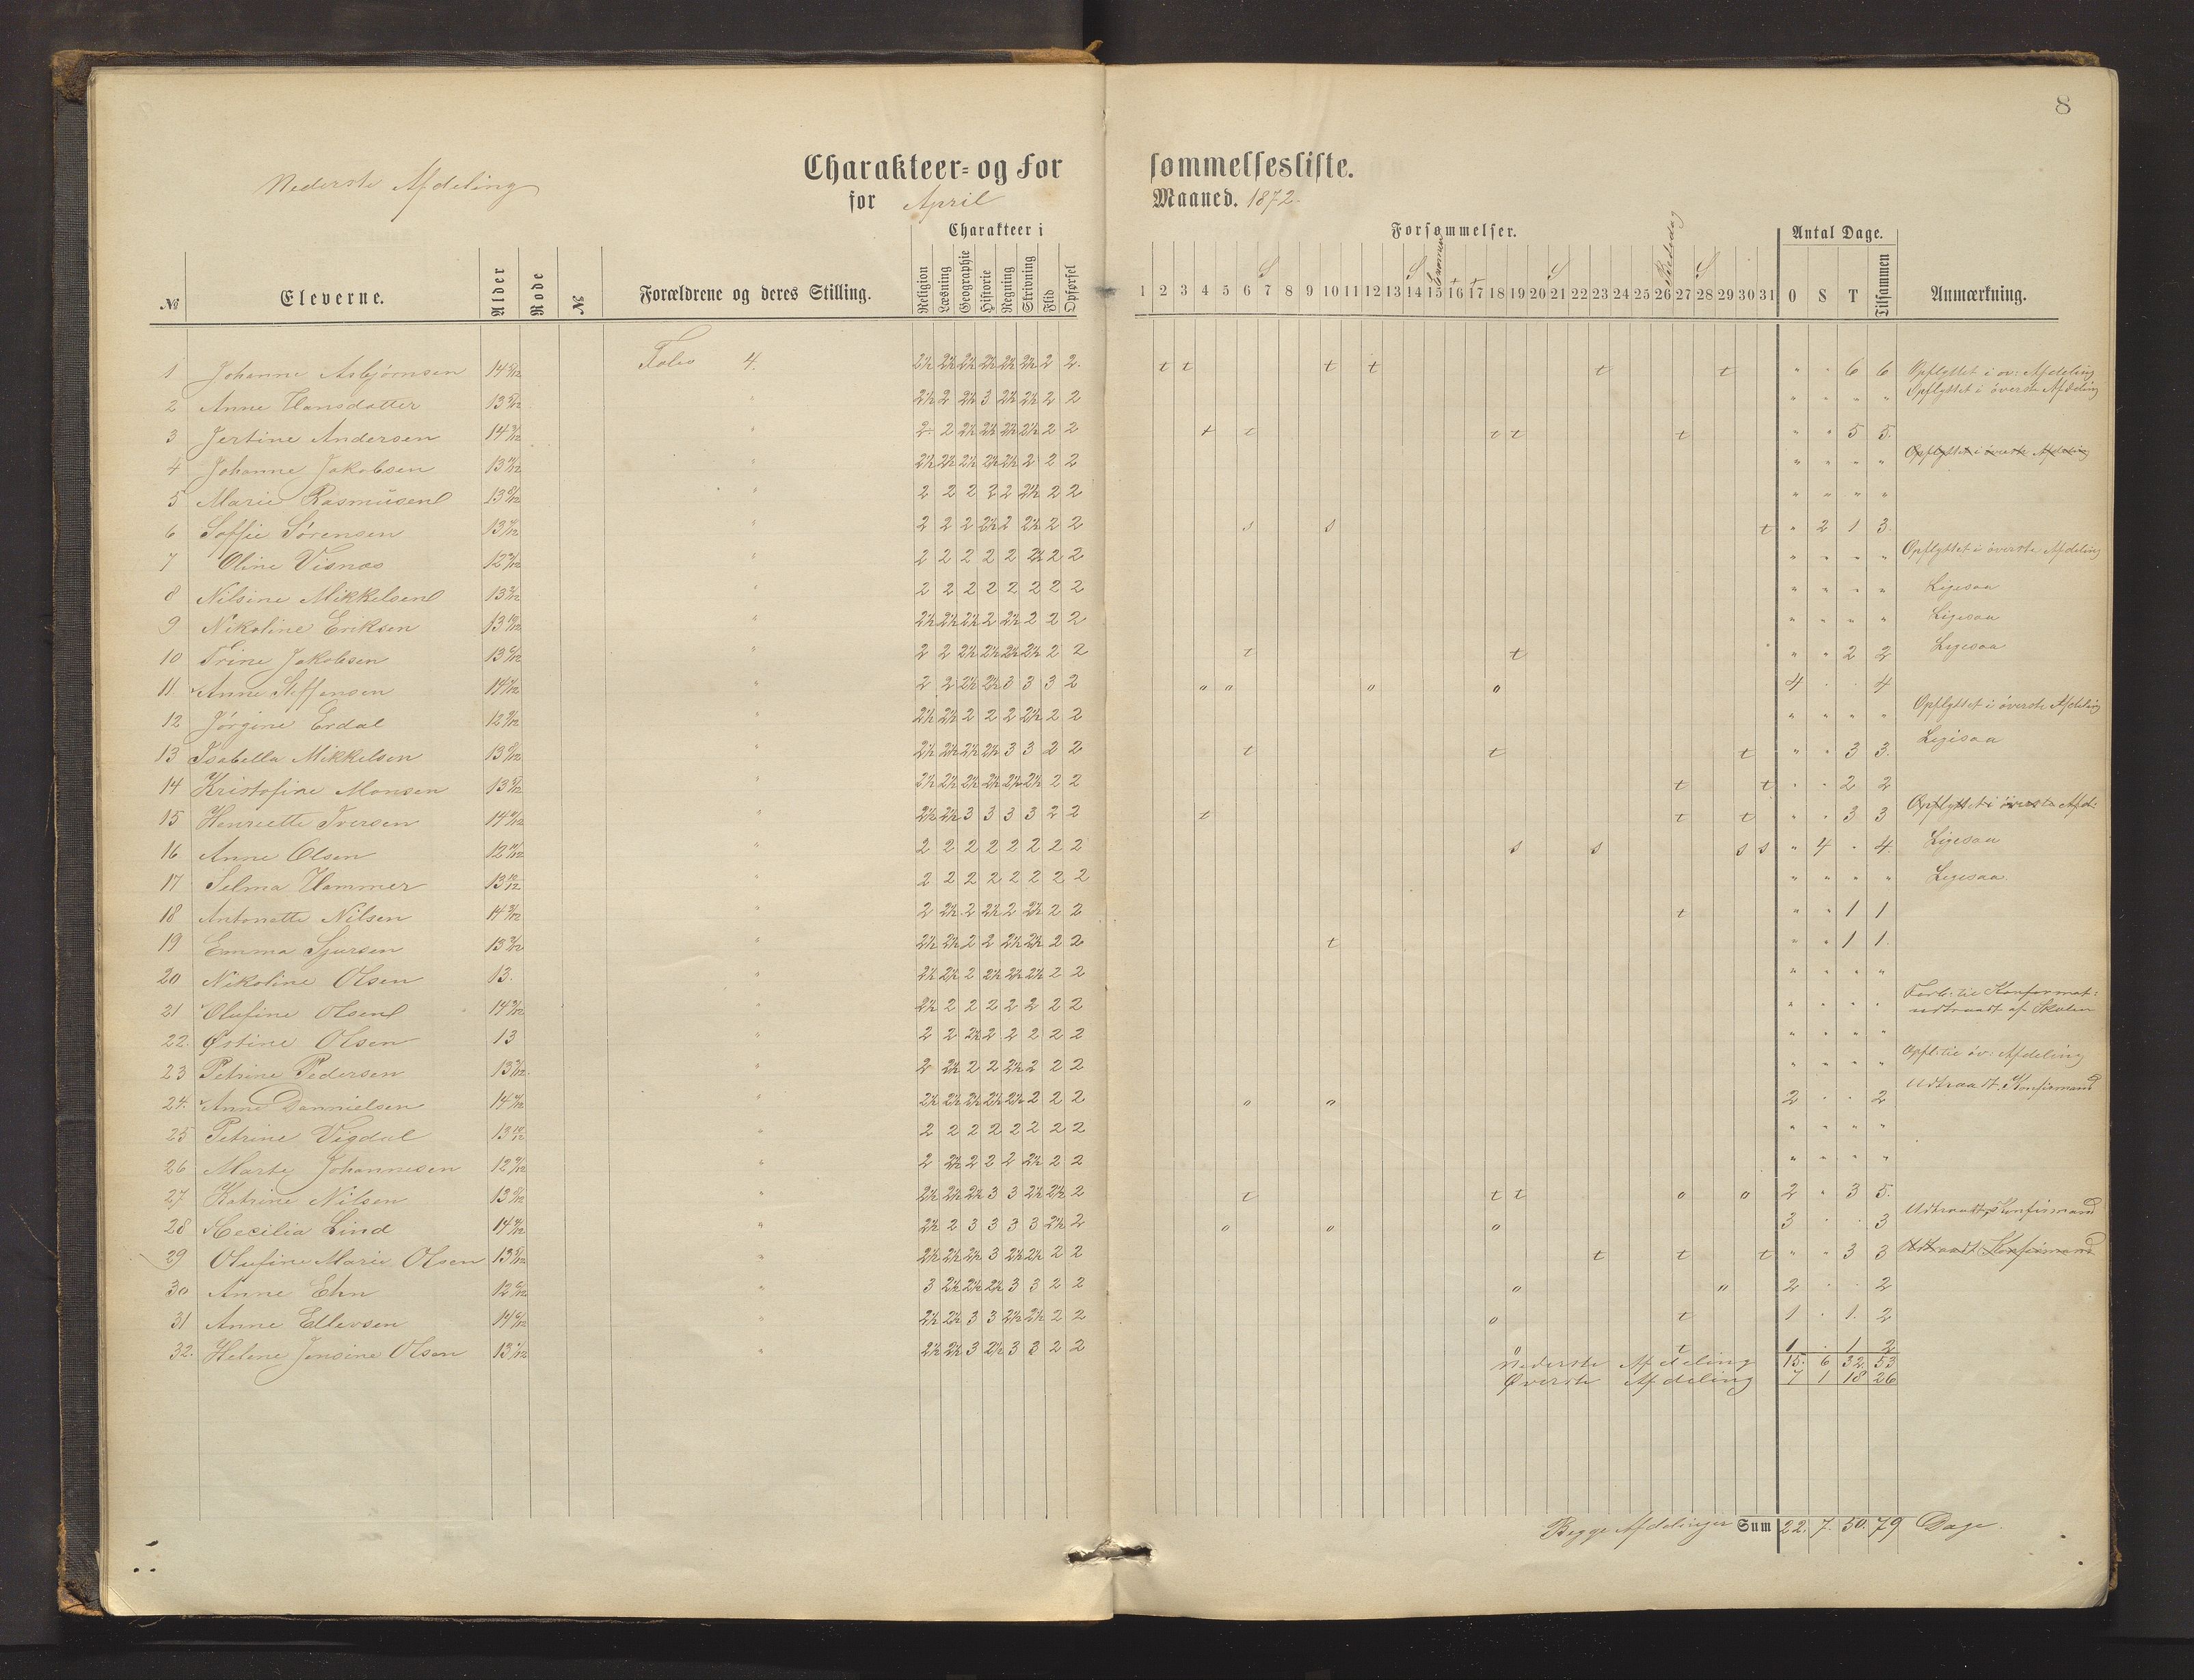 8
Nederste Afdeling
Charakteer- og For sømmelsesliste.
for April Maaned. 1872.
Charakteer i Forsømmelser. Antal Dage.
№ Eleverne. Alder Rode № Forældrene og deres Stilling. Religion Læsning Geographie Historie Regning Skrivning Flid Opførsel 1 2 3 4 5 6 7 8 9 10 11 12 13 14 15 16 17 18 19 20 21 22 23 24 25 26 27 28 29 30 31 O S T Tilsammen Anmærkning.
S S t t S Bededag S
1 Johanne Asbjørnsen Folio 4. 2½ 2½ 2½ 2½ 2½ 2½ 2 2. t t t t t t " " 6 6 Opflyttet i øv: Afdeling
2 Anne Hansdatter " 2½ 2 2½ 3 2½ 2½ 2 2 " " " " Opflyttet i överste Afdeling
3 Jertine Andersen " 2 2 2½ 2½ 2½ 2½ 2 2 t t t t t " " 5 5.
4 Johanne Jakobsen " 2½ 2½ 2½ 2½ 2½ 2 2 2 " " " " Opflyttet i överste Afdeling
5 Marie Rasmüsen " 2 2 2 2 2 2½ 2 2 " " " "
6 Soffie Sörensen " 2 2 2 2½ 2 2½ 2 2 s s t " 2 1 3.
7 Oline Visnæs " 2 2 2 2 2 2½ 2 2 " " " " Opflyttet i överste Afdeling
8 Nilsine Mikkelsen " 2 2 2 2 2 2 2 2 " " " " Ligesaa
9 Nikoline Eriksen " 2½ 2½ 2½ 2 2½ 2 2 2 " " " " Ligesaa
10 Trine Jakobsen " 2 2 2½ 2½ 2½ 2½ 2 2 t t " " 2 2 Ligesaa
11 Anne Steffensen " 2 2 2½ 2½ 3 3 3 2 o o o o 4 . . 4
12 Jörgine Erdal " 2½ 2½ 2 2 2 2½ 2 2 " " " " Opflyttet i överste Afdeling
13 Isabella Mikkelsen " 2½ 2½ 2½ 2½ 3 3 2 2 t t t " " 3 3. Ligesaa
14 Kristofine Monsen " 2½ 2½ 2½ 2½ 2½ 2½ 2 2 t t " " 2 2
15 Henriette Iversen " 2½ 2½ 3 3 3 3 2 2 t t t " " 3 3 Opflyttet i överste Afd:
16 Anne Olsen " 2 2 2 2 2 2 2 2 s s s s " 4 . 4 Ligesaa
17 Selma Hammer 13 10/12 " 2 2 2 2 2 2 2 2 " " " " Ligesaa.
18 Antonette Nilsen " 2 2½ 2 2½ 2 2½ 2 2 t " " 1 1
19 Emma Sjursen " 2½ 2½ 2 2 2½ 2½ 2 2 t " " 1 1
20 Nikoline Olsen 13. " 2½ 2½ 2 2½ 2½ 2½ 2 2 " " " "
21 Olufine Olsen " 2½ 2 2 2 2 2 2 2 " " " " Forb: til Konfirmat: udtraadt af Skolen
22. Østine Olsen 13 " 2 2 2½ 2 2 2 2 2 " " " "
23 Petrine Pedersen " 2 2½ 2 2 2½ 2 2 2 " " " " Opfl: til öv: Afdeling
24. Anne Dannielsen " 2½ 2½ 2½ 2½ 2½ 2 2 2 o o 2 . . 2 Udtraadt. Konfirmand
25 Petrine Vigdal 13 10/12 " 2 2 2 2 2 2 2 2 " " " "
26 Marte Johannesen " 2 2½ 2 2 2 2½ 2 2 " " " "
27 Katrine Nilsen " 2½ 2½ 2½ 3 3 2½ 2½ 2 t t t o o 2 " 3 5.
28 Cecilia Lind " 2½ 2 3 3 3 3 2½ 2 o o o 3 . . 3 Udtraadt, Konfirmand
29 Olufine Marie Olsen " 2½ 2½ 2½ 3 2½ 2½ 2 2 t t t " " 3 3 Udtraadt Konfirmand
30 Anne Ehn " 3 2½ 2½ 2½ 3 3 2 2 o o 2 . . 2
31 Anne Ellevsen " 2½ 2½ 3 3 2½ 2½ 2 2 o t 1 . 1. 2
32. Helene Jensine Olsen " 2½ 2½ 3 2½ 3 3 2 2 o t 1 . 1 2
Nederste Afdeling 15. 6 32 53
Øverste Afdeling 7 1 18 26
Begge Afdelinger Sum 22. 7. 50. 79 Dage.